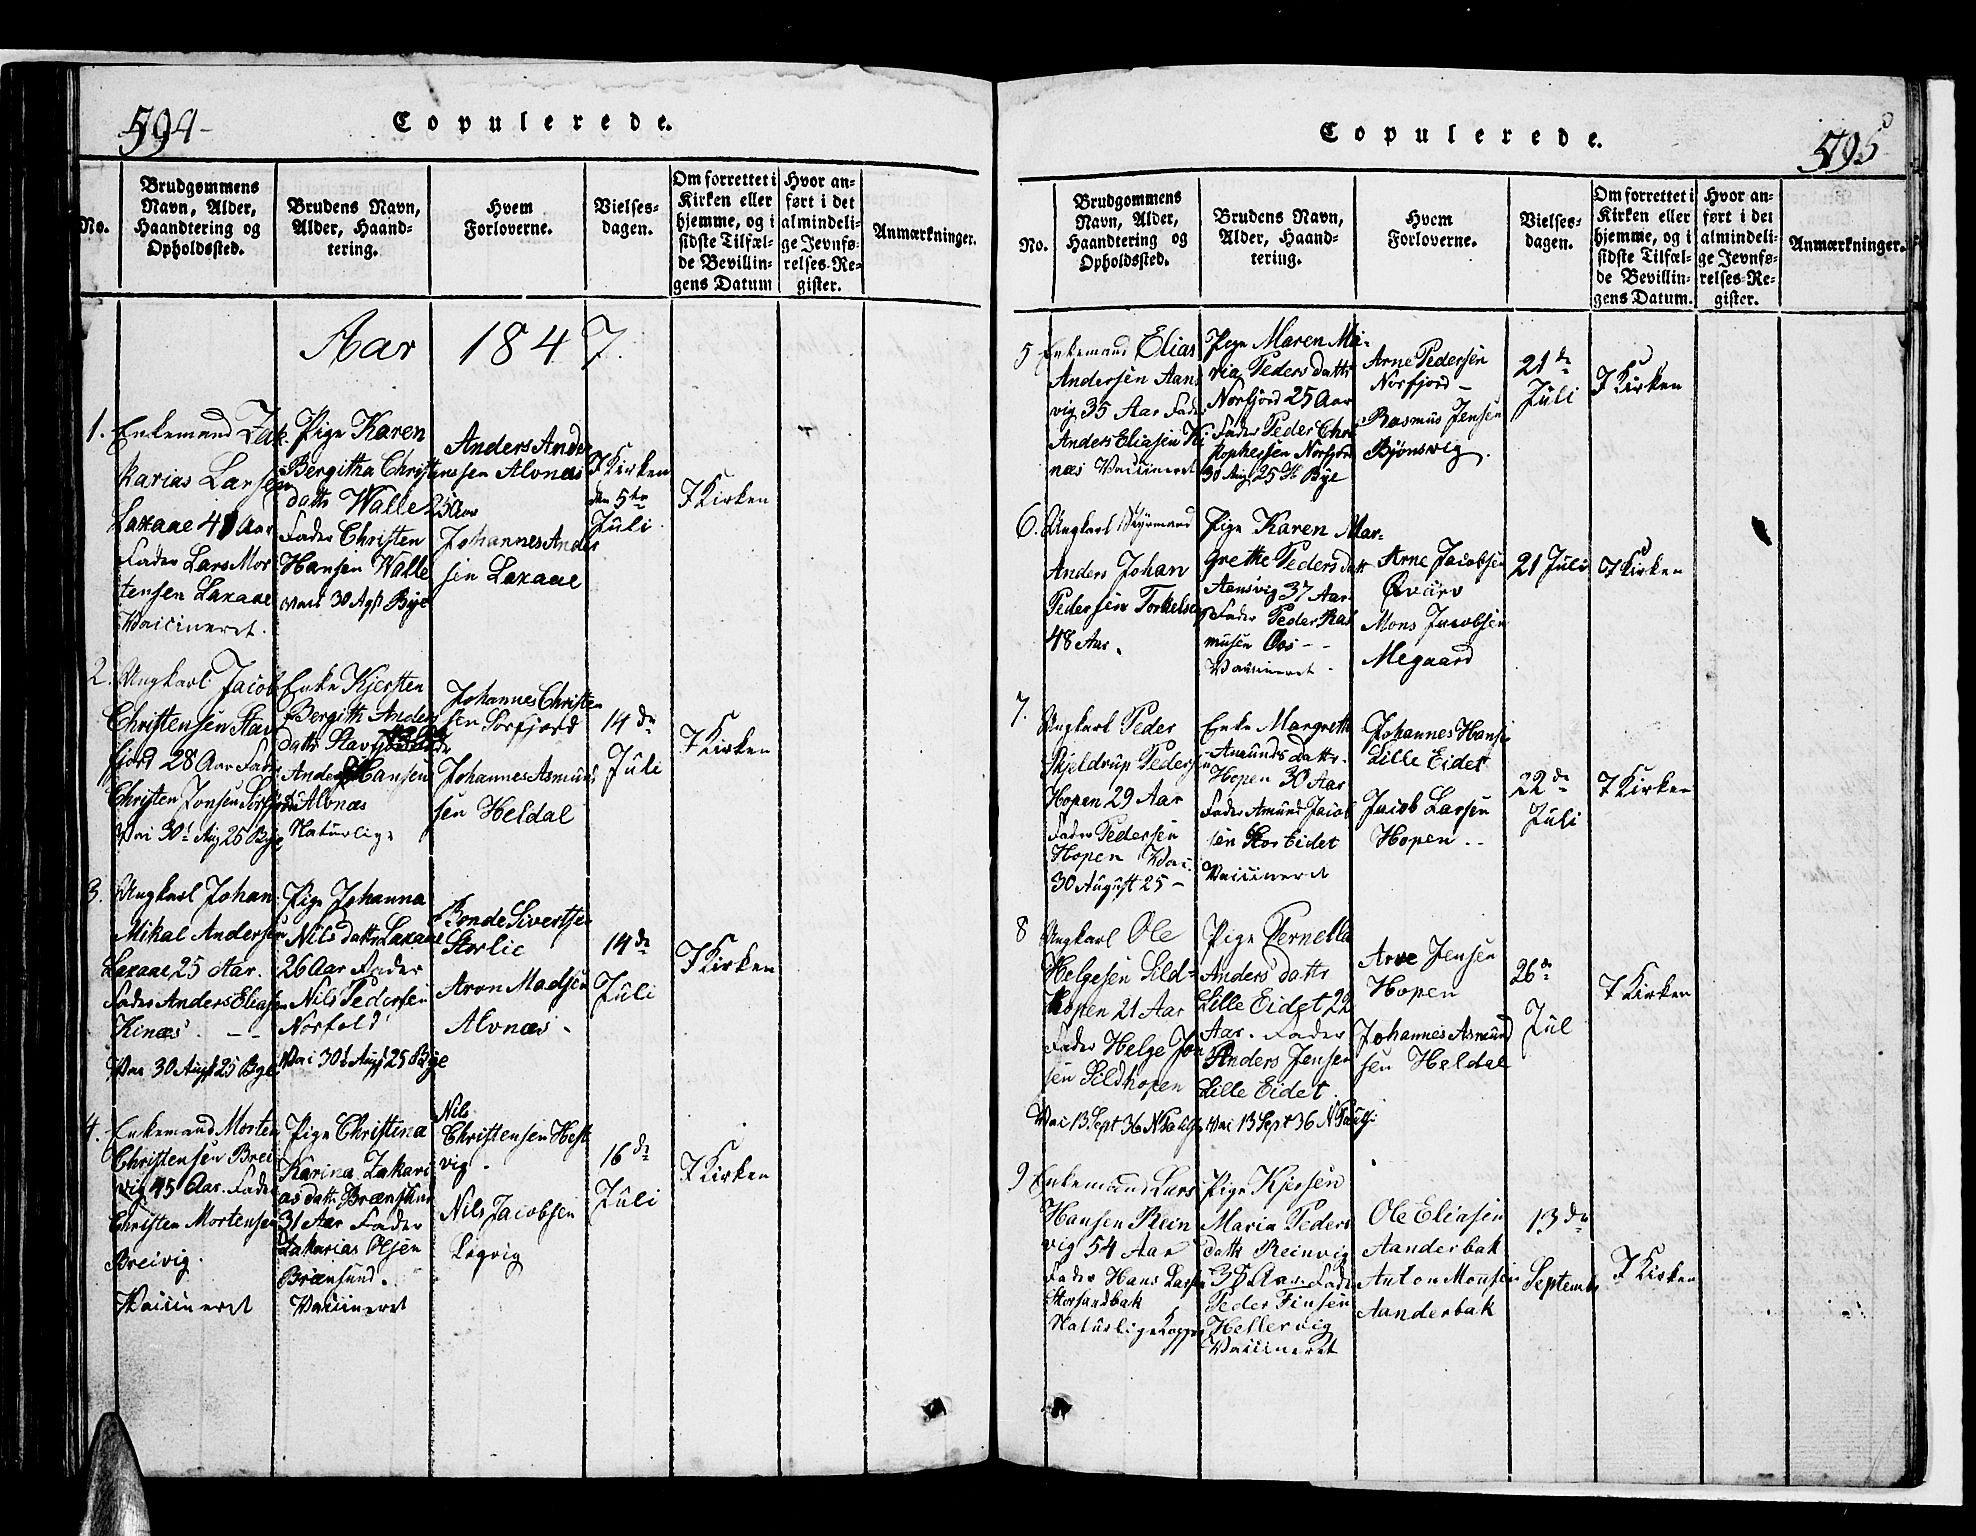 594
Copulerede.
No.
Brudgommens
Navn, Alder,
Haandtering og
Opholdssted.
Brudens Navn,
Alder, Haand-
tering.
Hvem
Forloverne.
Vielses-
dagen.
Om forrettet i
Kirken eller
hjemme, og i
sidste Tilfæl-
de Bevillin-
gens Datum
Hvor an-
ført i det
almindeli-
ge Jevnfø-
relses-Re-
gister.
Anmærkninger.
Aar 1847.
1. Enkemand Zak
karias Larsen
Laxaae 41 Aar
Fader Lars Mor
tensen Laxaae
Vaccineret.
Pige Karen
Bergitha Christens
datter Walle 25 Aar
Fader Christen
Hansen Walle
vacc 30 Agst Bye
Anders Ander
sen Alvnæs
Johannes Ander
sen Laxaae
I Kirken
den 5te
Juli
I Kirken
2. Ungkarl Jacob
Christensen Stav
fjord 28 Aar Fader
Christen Jonsen Sørfjord
Vac 30t Aug 25 Bye
Enke Kjersten
Bergith Anders
datter
Anders Hansen
Alvnæs
Naturlige
Johannes Christen
sen Sørfjord
Johannes Asmund
sen Heldal
14 de
Juli
I Kirken
3. Ungkarl Johan
Mikal Andersen
Laxaae 25 Aar.
Fader Anders Eliasen
Kinæs - -
Vac 30 Augst 25 Bye
Pige Johanna
Nils datter Laxaae
26 Aar Fader
Nils Pedersen
Norfold
Vac 30t Augst 25 Bye
Bonde Sivertsen
Storlie
Aron Madsen
Alvnæs -
14 de
Juli
I Kirken
4. Enkemand Morten
Christensen Brei
vig 45 Aar. Fader
Christen Mortensen
Breivig.
Vaccineret
Pige Christina
Karina Zakari
as datter Brænsund
31 Aar Fader
Zakarias Olsen
Brænsund.
Vaccineret
Nils
Christensen Hest
vig -
Nils Jacobsen
Løgvig
16 de
Juli
I Kirken
595
Copulerede.
No.
Brudgommens
Navn, Alder,
Haandtering og
Opholdssted.
Brudens Navn,
Alder, Haand-
tering.
Hvem
Forloverne.
Vielses-
dagen.
Om forrettet i
Kirken eller
hjemme, og i
sidste Tilfæl-
de Bevillin-
gens Datum.
Hvor an-
ført i det
almindeli-
ge Jevnfø-
relses-Re-
gister.
Anmærkninger.
5 Enkemand Elias
Andersen Aans
vig 35 Aar Fader
Anders Eliasen Ki
næs Vaccineret
Pige Maren Ma-
ria Peders datter
Norfjord 25 Aar
Fader Peder Chri
stophersen Norfjord
30 Aug. 25 H Bye
Arne Pedersen
Norfjord -
Rasmus Jensen
Bjønsvig.
21 de
Juli
I Kirken
6. Ungkarl Styrmand
Anders Johan
Pedersen Torkelsen
48 Aar.
Pige Karen Mar-
grethe Peders datt
Aansvig 37 Aar
Fader Peder Ras
musen Øos - -
Vaccineret -
Arne Jacobsen
Qvarv
Mons Jacobsen
Megaard
21 Juli
I Kirken
7. Ungkarl Peder
Skjeldrup Pedersen
Hopen 29 Aar
Fader Pedersen
Hopen Vac:
30 August 25 -
Enke Margreth
Amunds datter
Hopen 30 Aar
Fader Amund Jacob
sen Stor Eidet
Vaccineret
Johannes Hansen
Lille Eidet
Jacob Larsen
Hopen ..
22 de
Juli
I Kirken
8 Ungkarl Ole
Helgesen Sild-
hopen 21 Aar
Fader Helge Jon
sen Sildhopen
Vac 13 Sept 36 N
Pige Pernella
Anders datter
Lille Eidet 22
Aar. Fader
Anders Jensen
Lille Eidet.
Vac 13 Sept 36 N
Arne Jensen
Hopen
Johannes Asmund
sen Heldal
26 de
Jul
I Kirken
9 Enkemand Lars
Hansen Rein
vig 54 Aar
Fader Hans Larsen
Storsandbak
Naturlige kopper
Pige Kjersten
Maria Peders
datter Reinvig
35 Aar. Fader
Peder Finsen
Hellervig
Vaccineret
Ole Eliasen
Aanderbak
Anton Monsen
Aanderbak
13 de
Septembr
I Kirken